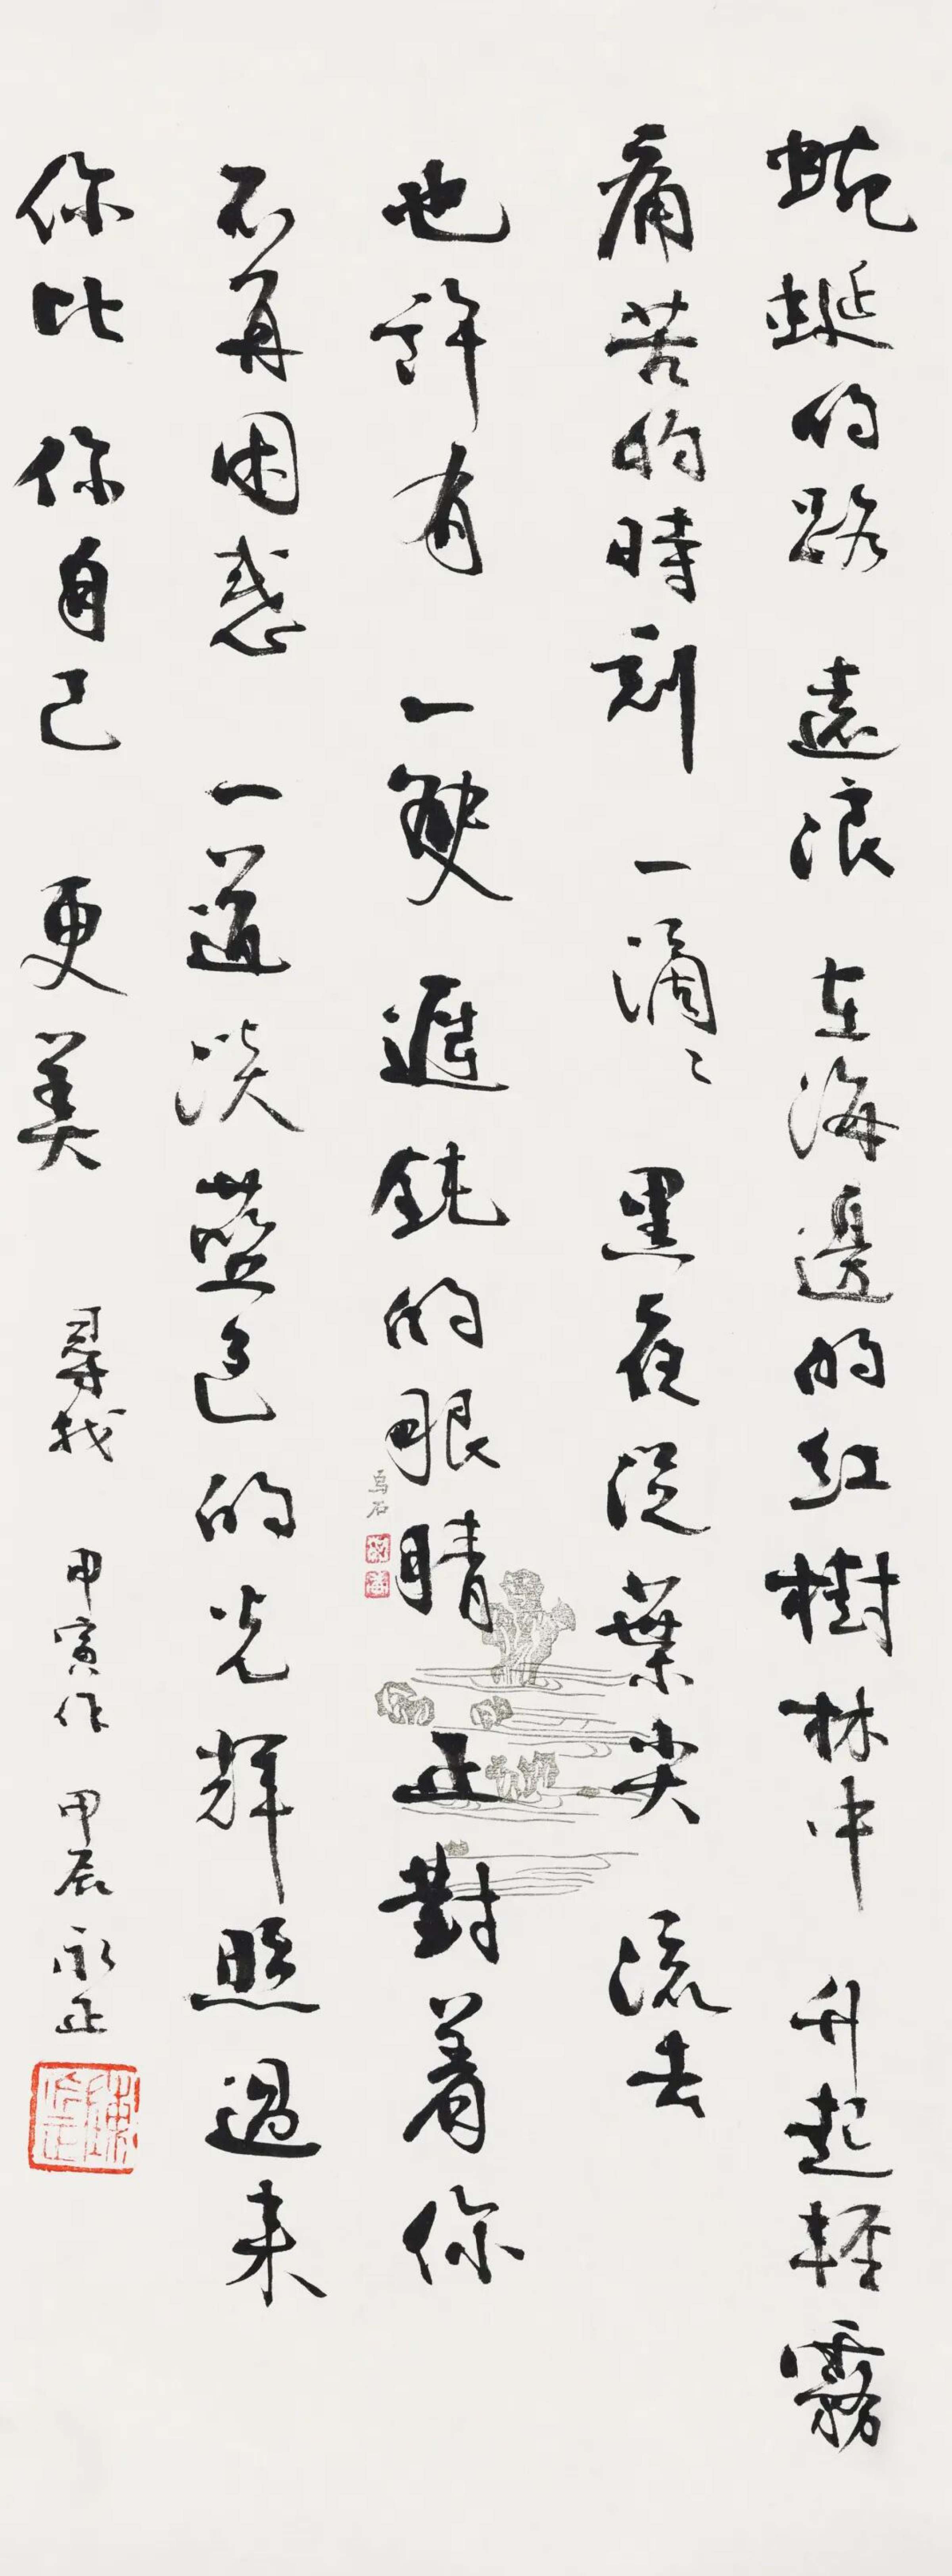 蜿蜒的路 遠浪 在海邊的紅樹林中 升起輕霧
痛苦的時刻 一滴〻 黑夜從葉尖 流去
也許有 一雙 遲鈍的眼睛 正對着你
不再困惑 一道淡藍色的光輝照過来
你比 你自己 更美 尋找 甲寅作 甲辰 永正
烏石